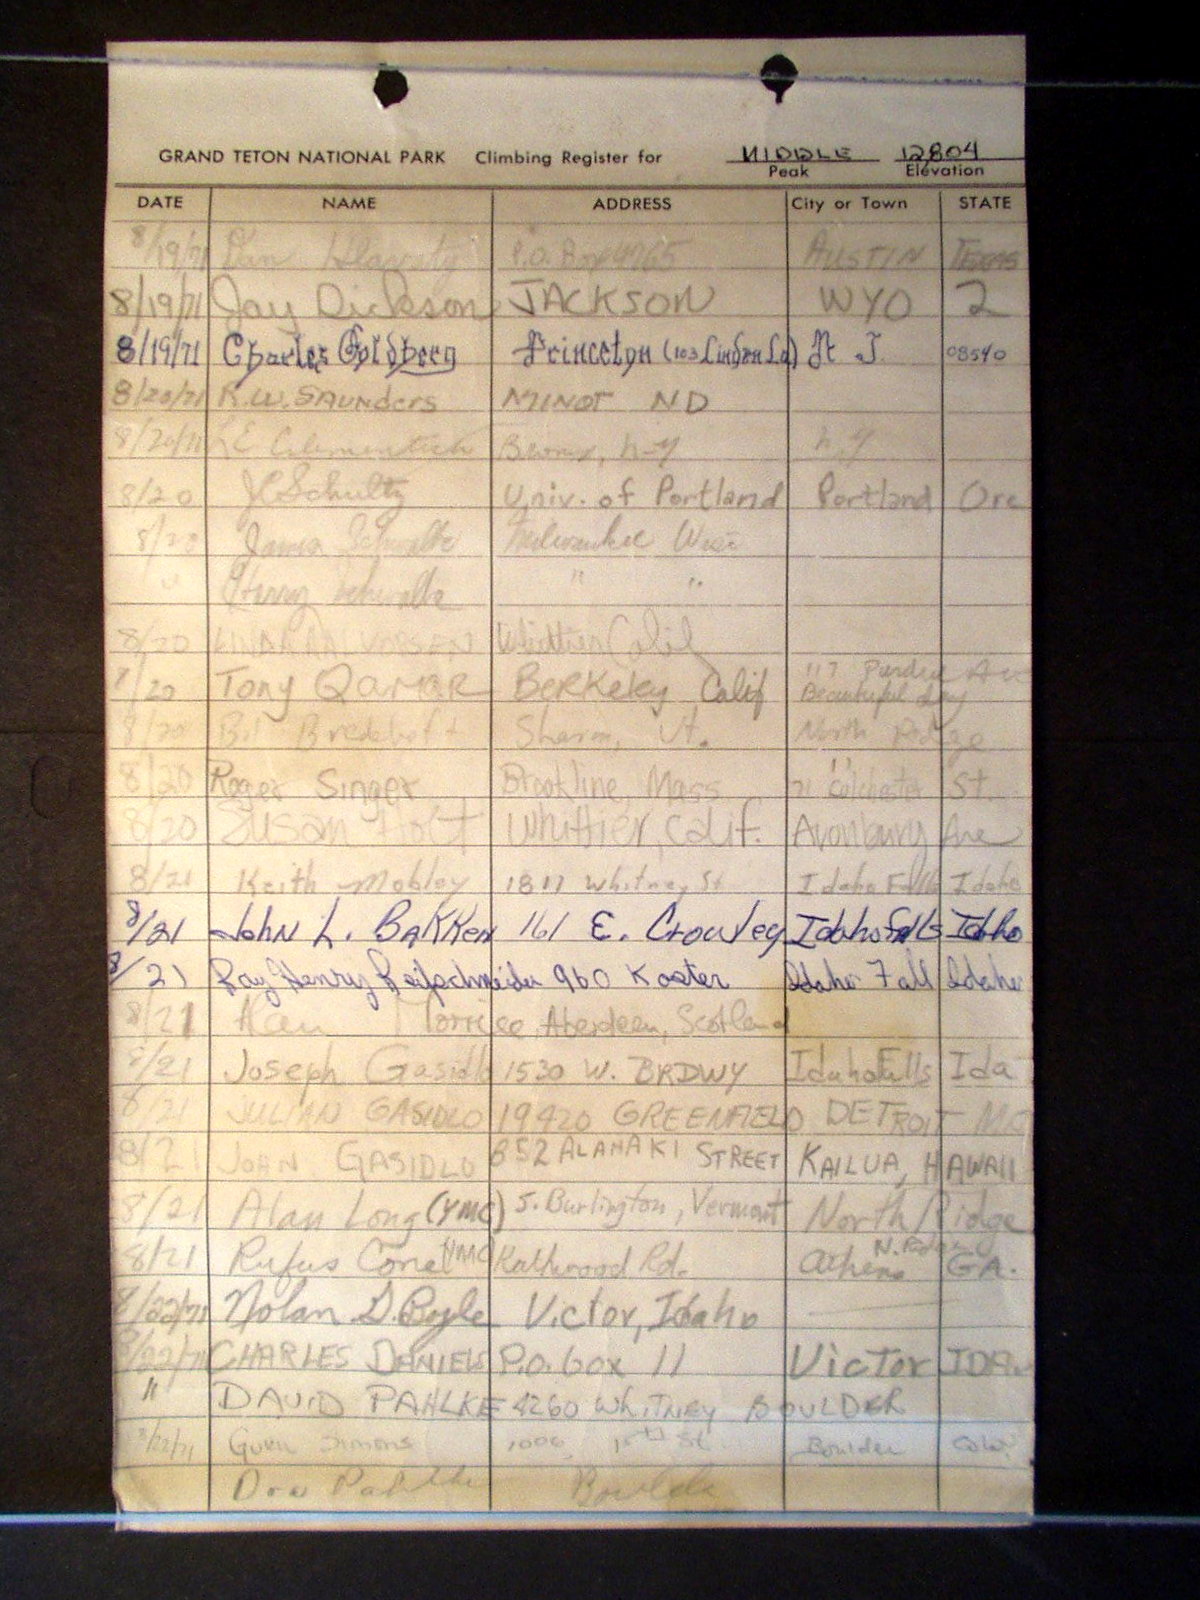 GRAND TETON NATIONAL PARK Climbing Register for MIDDLE 12,804
Peak Elevation
DATE NAME ADDRESS City or Town STATE
8/19/71 Dan P.O. Box 4765 AUSTIN TEXAS
8/19/71 Jay Dickson JACKSON WYO 2
8/19/71 Charles Goldberg Princeton (103 Linden La) N. J. 08540
8/20/71 R.W. SAUNDERS MINOT ND
8/20/71 N.Y. N.Y.
8/20 JC Schultz Univ. of Portland Portland Ore
8/20 James Milwaukee Wisc
" Harry " "
8/20 Whittier Calif
8/20 Tony QAMAR BERKeley Calif 117 Purdue Ave
Beautiful day
8/20 Bredehoft Sharon, Vt. North Ridge
8/20 Roger Singer Brookline, Mass 21 Colchester St.
8/20 SUSAN HOLT Whittier, Calif. Avonbury Ave
8/21 Keith Mobley 1817 Whitney St Idaho Falls Idaho
8/21 John L. BAKKen 161 E. Crowley Idaho Falls Idaho
8/21 Ray Henry Reifschneider 960 Koster Idaho Fall Idaho
8/21 Alan Morrice Aberdeen, Scotland
8/21 Joseph Gasidlo 1530 W. BRDWY Idaho Falls Ida
8/21 JULIAN GASIDLO 19420 GREENFIELD DETROIT
8/21 JOAN GASIDLO 852 ALAHAKI STREET KAILUA, HAWAII
8/21 Alan Long (YMC) S. Burlington, Vermont North Ridge
8/21 Rufus YMC Rd. Athens N. Ridge GA.
8/22/71 Nolan D. Boyle Victor, Idaho
8/22/71 CHARLES DANIELS P.O. box 11 Victor IDA.
" DAVID PAHLKE 4260 WHITNEY BOULDER
8/22/71 Simons 1000 15th St Boulder Colo.
Don Pahlke Boulder